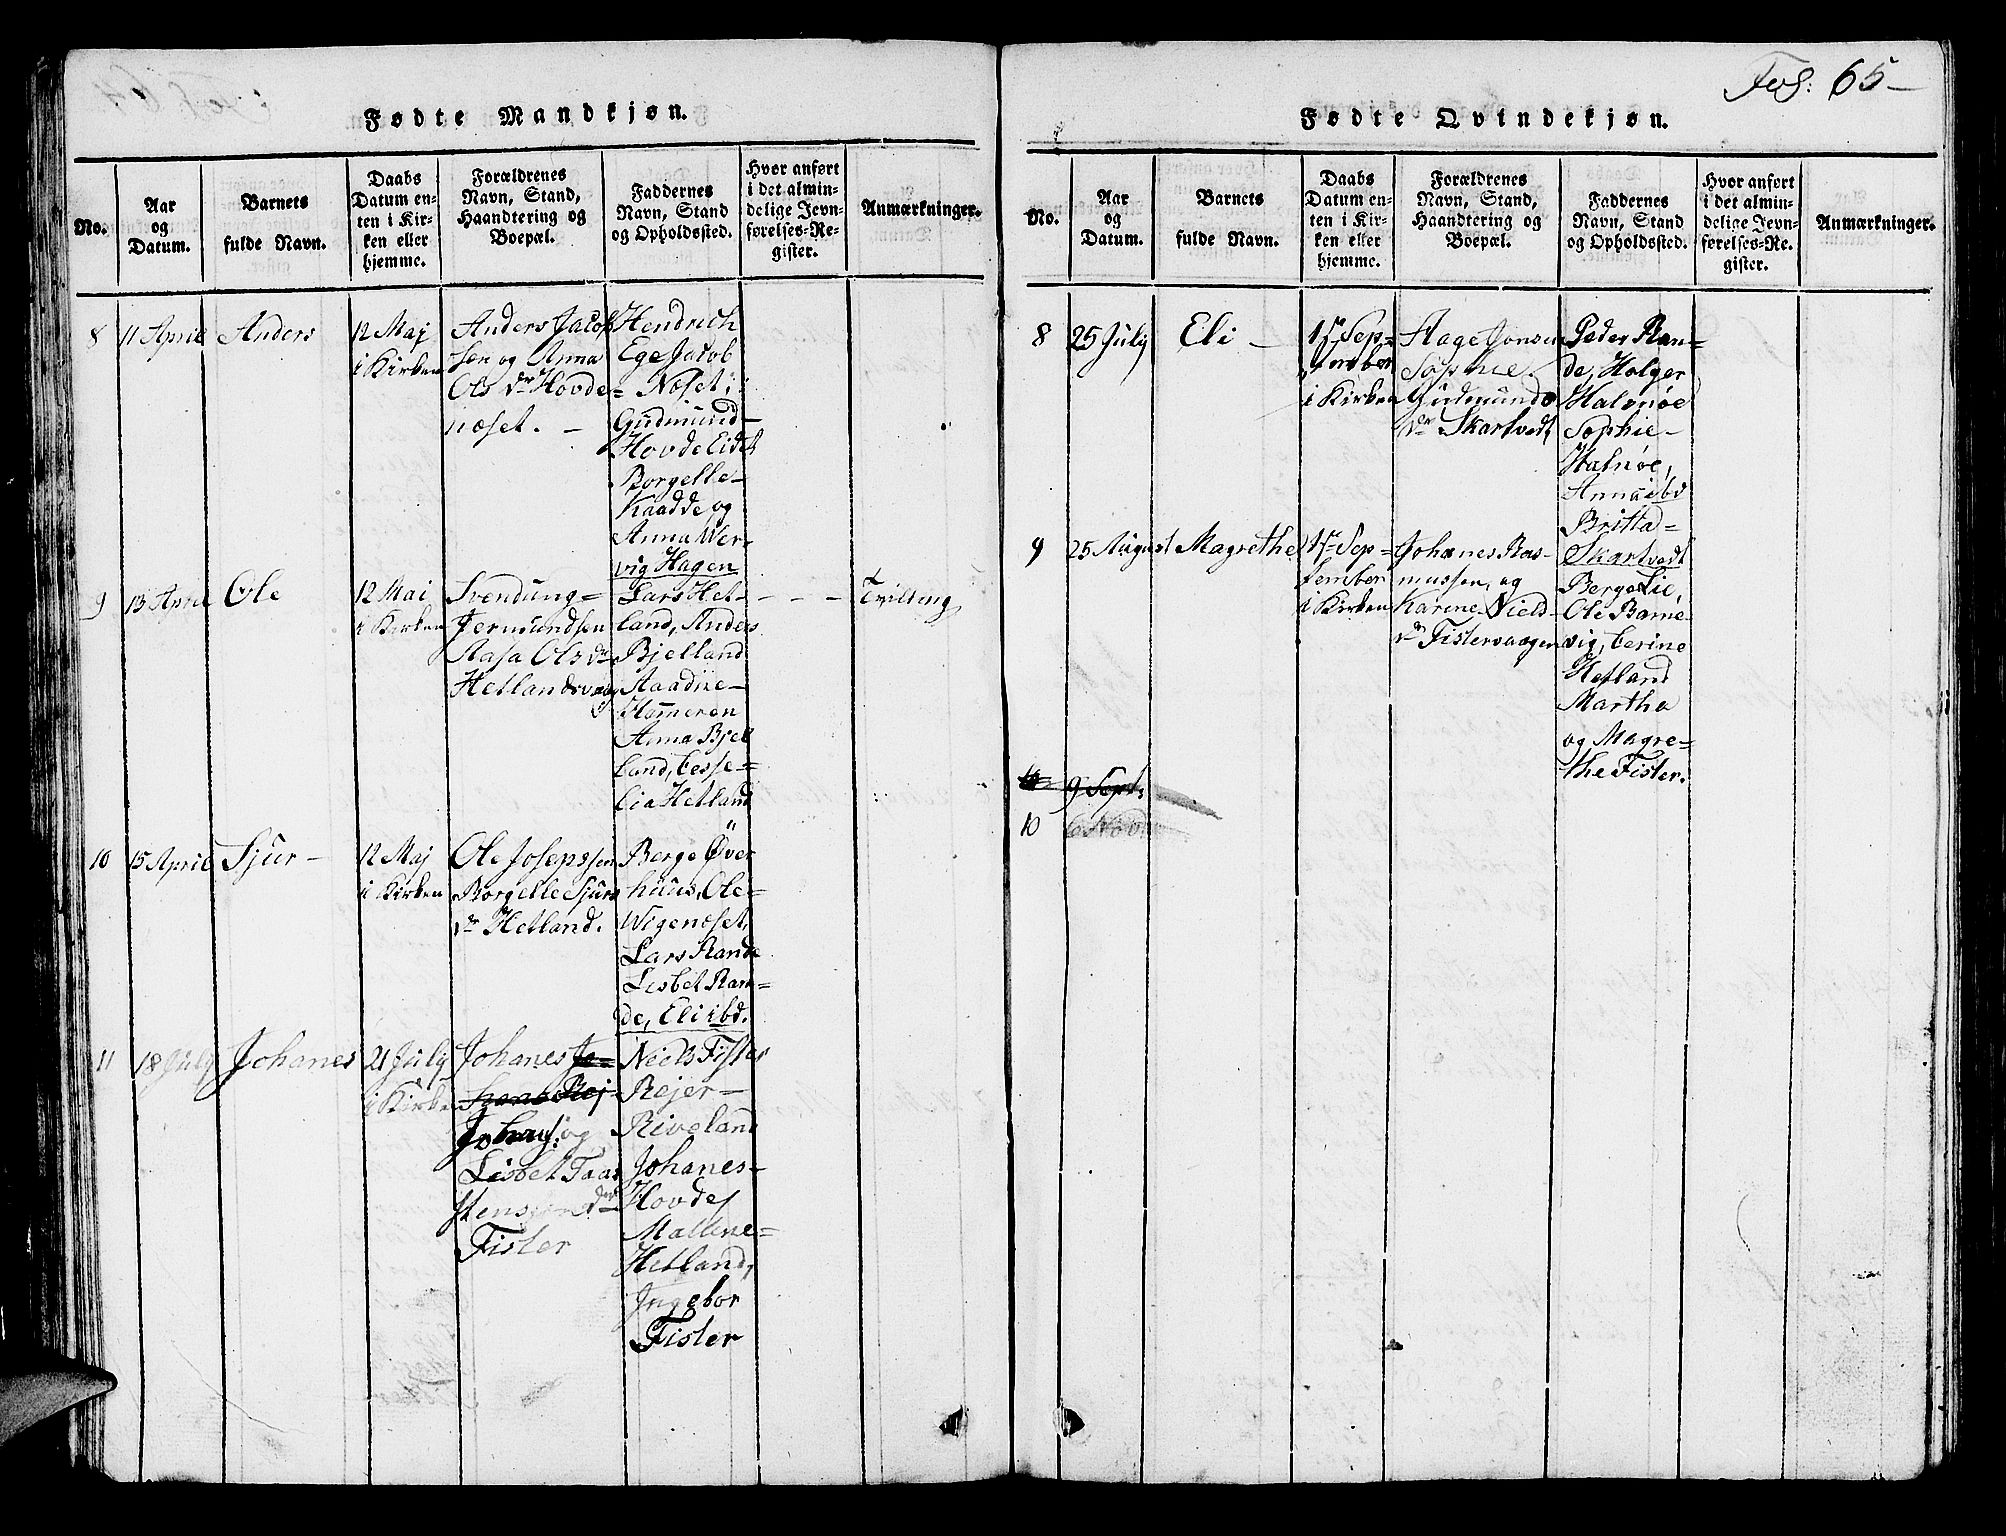 Fødte Mandkjøn.
No.
Aar
og
Datum.
Barnets
fulde Navn.
Daabs
Datum en-
ten i Kir-
ken eller
hjemme.
Forældrenes
Navn, Stand,
Haandtering og
Boepæl.
Faddernes
Navn, Stand
og Opholdssted.
Hvor anført
i det almin-
delige Jevn-
førelses-Re-
gister.
Anmærkninger.
8
11 April
Anders
12 Maj
i Kirken
Anders Jacob
sen og Anna
Ols dr Hovde-
næset. -
Hendrich
Ege Jacob
= Næset;
Gudmund-
Hovde Eidet
Borgelle-
Kaadde og
Anna Wer-
vig Hagen
9
13 April
Ole
12 Mai
i Kirken
Svendung=
Jermundsen
Aasa Ols dr
Hetlandsvaag
Lars Het-
land, Anders
Bjelland
Aadne-
Hameren
Anna Bjel
land,
lia Hetland
- - -
Tvilling
10
15 April
Sjur -
12 Maj
i Kirken
Ole Josepssen
Borgelle Sjurs
dr Hetland.
Berge Över
huus, Ole-
Wigenæset,
Lars Rande
Lisbet Ran=
de, Eli ibd.
11
18 July
Johanes
21 July
i Kirken
Johanes
Johans: og
Lisbet Taar
stens dr
Fister
Niels Fister
Rejer-
Riveland
Johanes-
Hovde
Mallene=
Hetland,
Ingebor
Fister
Fol: 65-
Fødte Qvindekjøn.
No.
Aar
og
Datum.
Barnets
fulde Navn.
Daabs
Datum en-
ten i Kir-
ken eller
hjemme.
Forældrenes
Navn, Stand,
Haandtering og
Boepæl.
Faddernes
Navn, Stand
og Opholdssted.
Hvor anført
i det almin-
delige Jevn-
førelses-Re-
gister.
Anmærkninger.
8
25 July
Eli -
1ste Sep=
tember
i Kirken
Aage Jonsen
Sophie
Gudmunds
dr Skartvedt
Peder Ran=
de, Holger
Halnøe
Sophie-
Halnøe,
Anna ibd
Britta=
Skartvedt
9
25 August
Magrethe
1ste Sep=
tember
i Kirken
Johanes Ras-
mussen, og
Karine Niels-
dr Fistervaagen
Berge Lie,
Ole Barne=
vig, Cerine
Hetland
Martha
og Magre=
the Fister.
10
9 Sept:
10
6 Nov